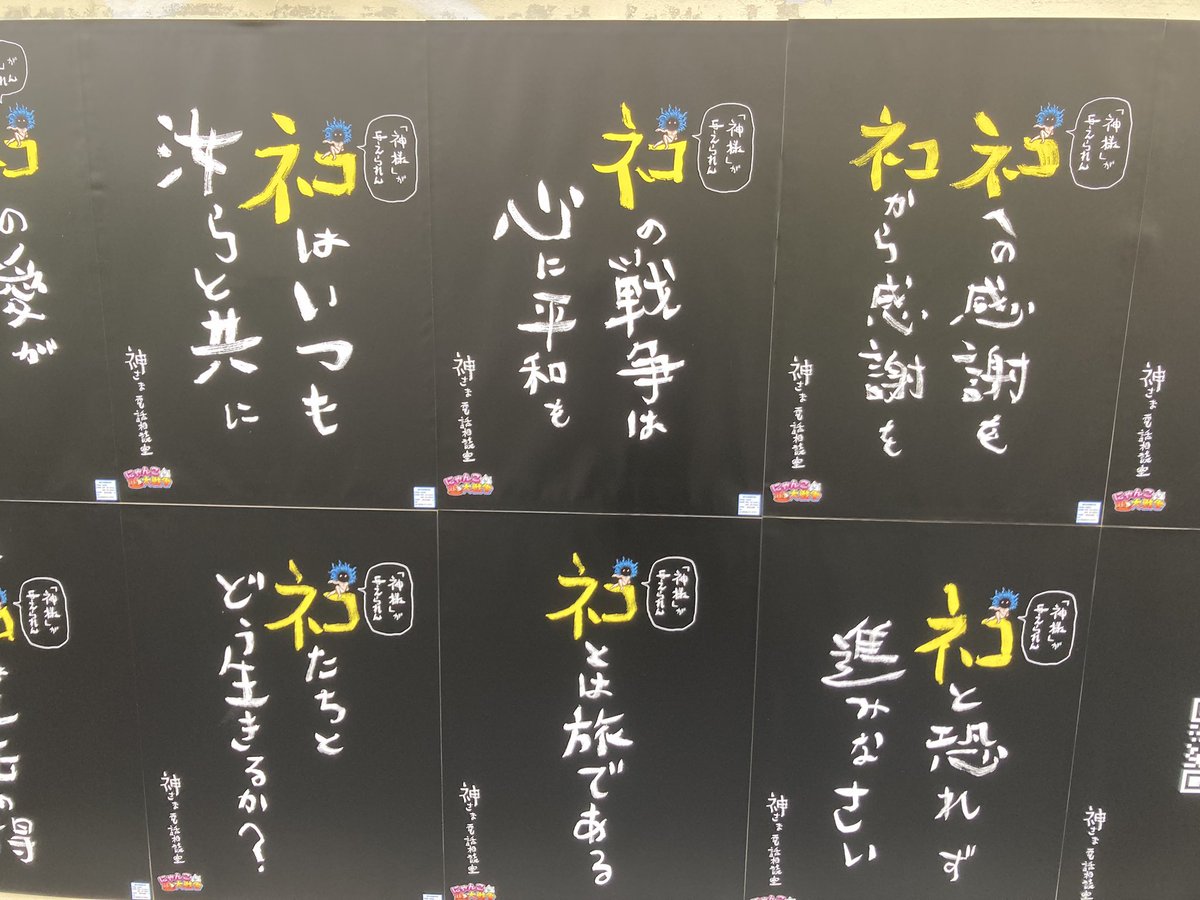 神さま 電話相談室
にゃんこ
大戦争
「神様」が
与えられん
ネコへの感謝を
ネコから感謝を
神さま 電話相談室
にゃんこ
大戦争
「神様」が
与えられん
ネコの戦争は
心に平和を
神さま 電話相談室
にゃんこ
大戦争
「神様」が
与えられん
ネコはいつも
汝らと共に
神さま 電話相談室
にゃんこ
大戦争
の愛が
神さま 電話相談室
「神様」が
与えられん
ネコと恐れず
進みなさい
神さま 電話相談室
にゃんこ
大戦争
「神様」が
与えられん
ネコとは旅である
神さま 電話相談室
にゃんこ
大戦争
「神様」が
与えられん
ネコたちと
どう生きるか?
神さま 電話相談室
にゃんこ
大戦争
「神様」が
与えられん